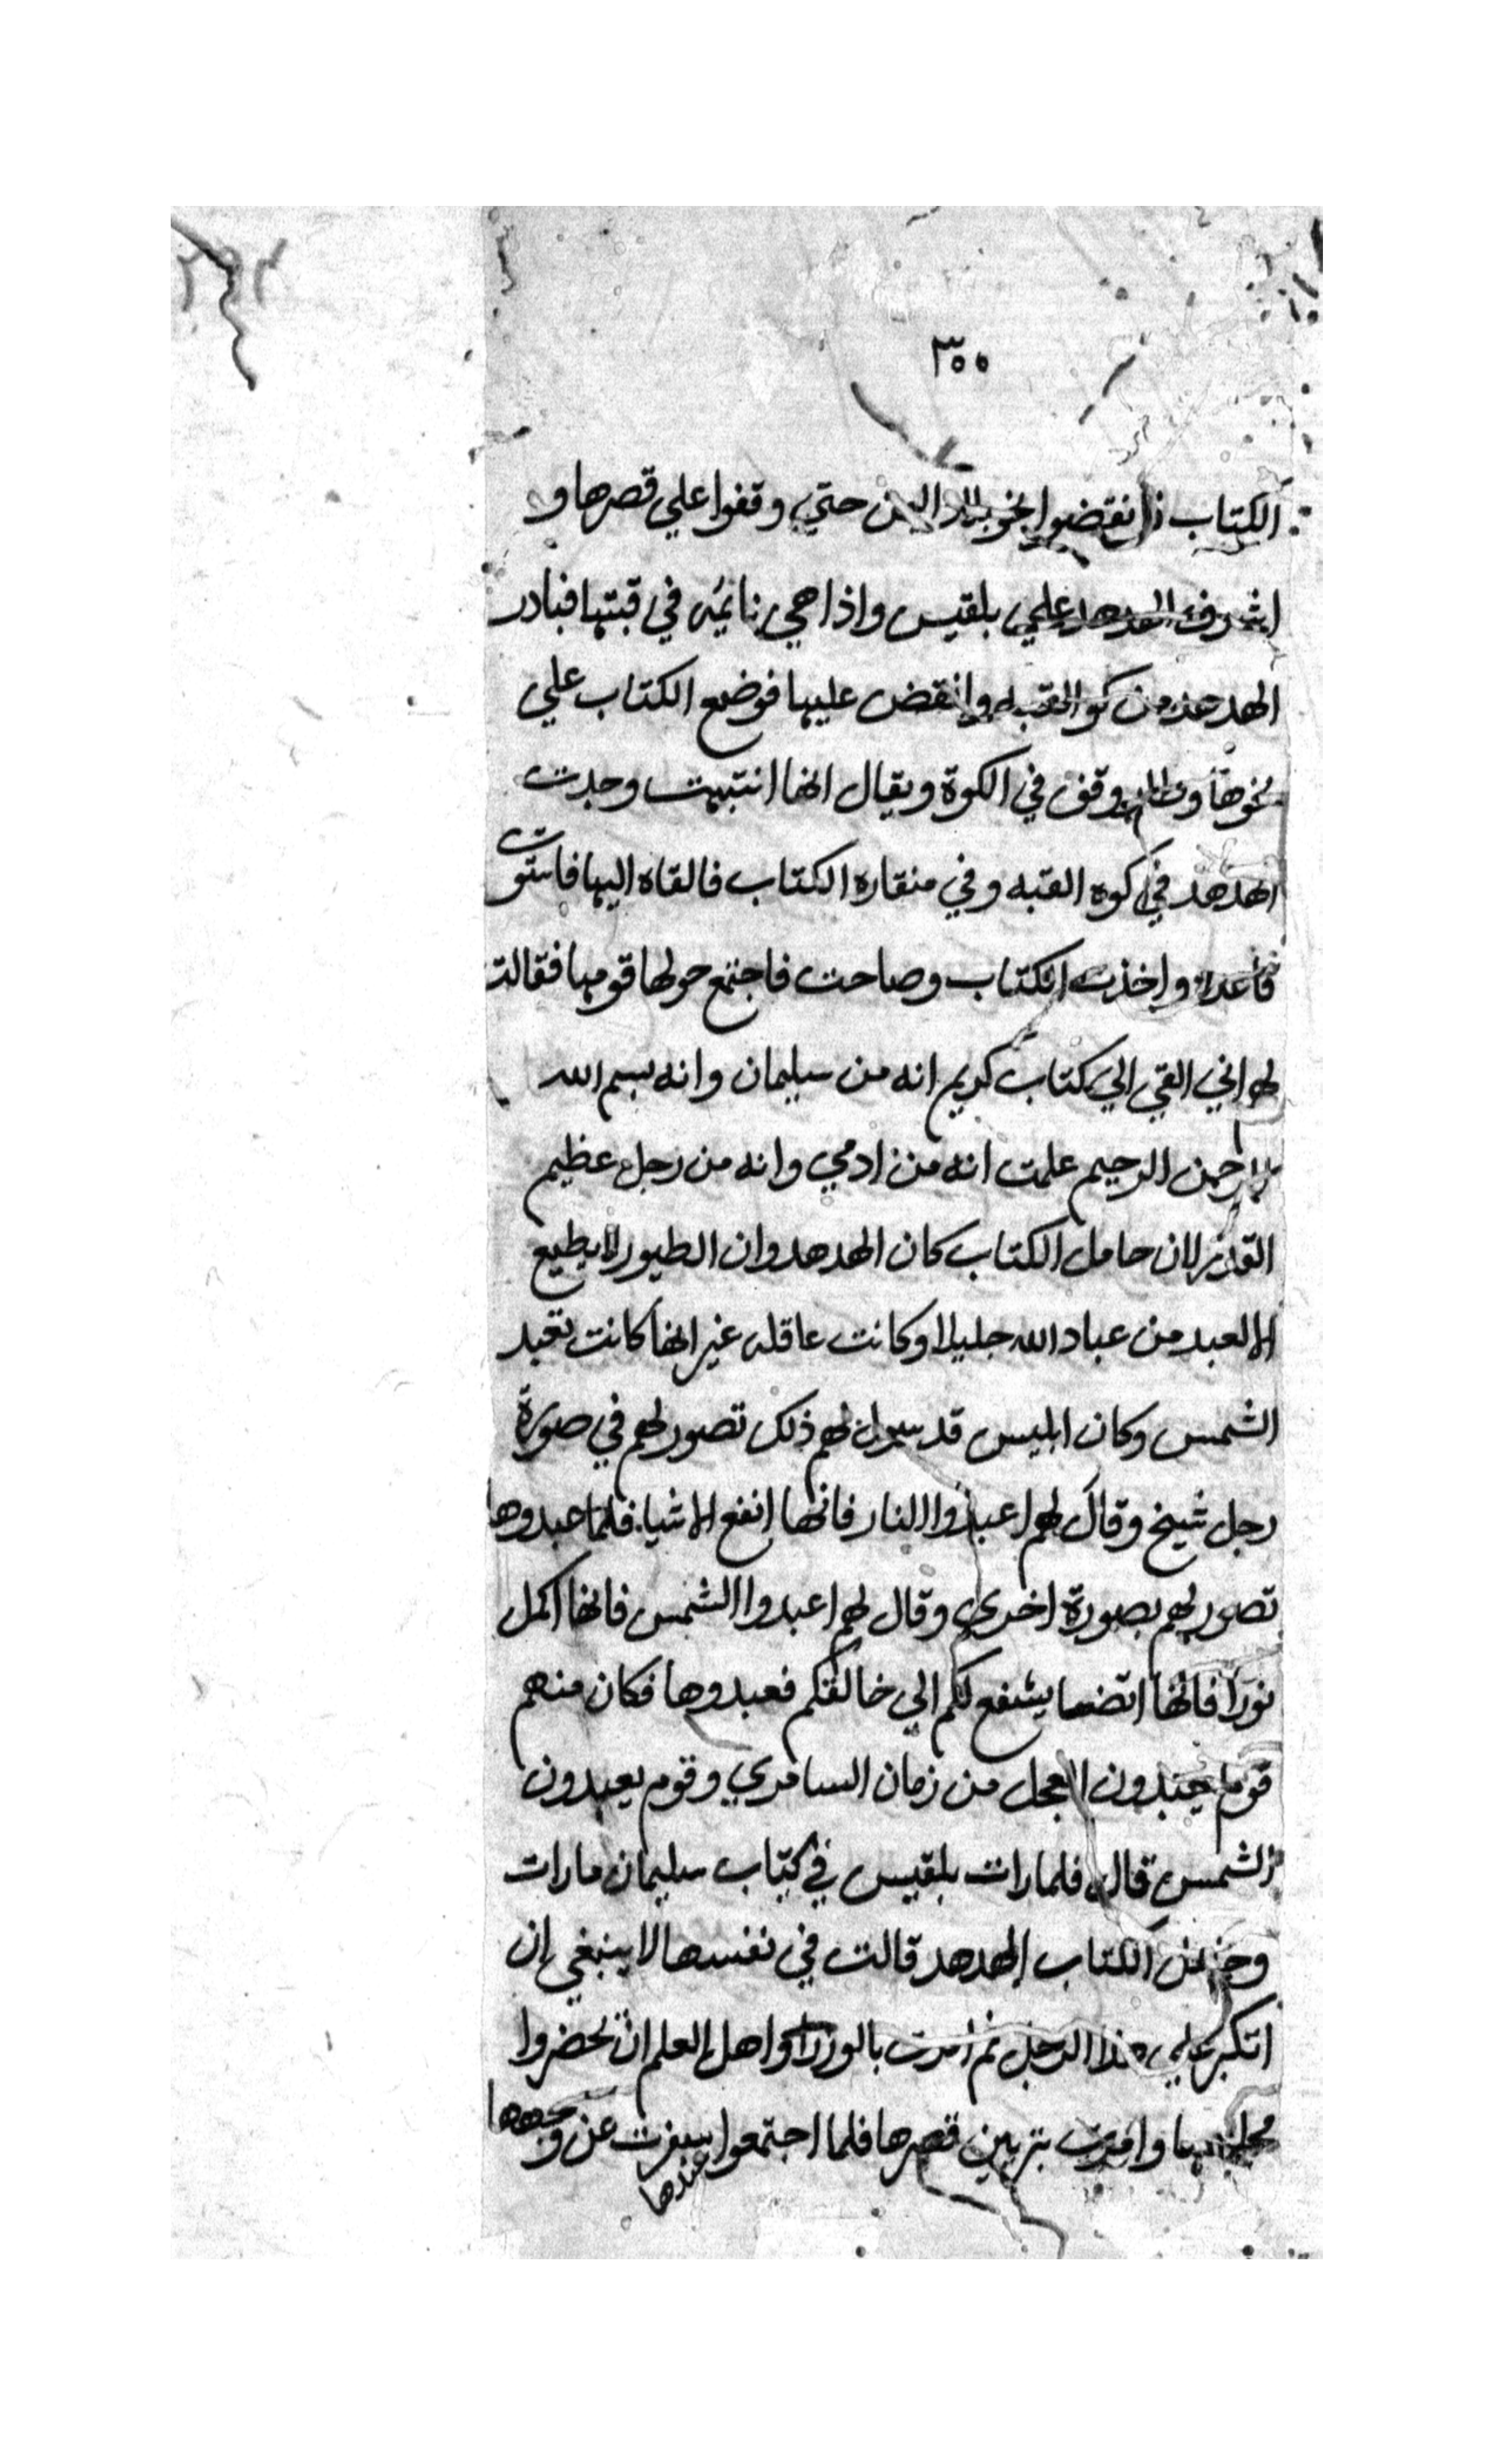 ٣٥٥
الكتاب فانقضوا نحو بلاد اليمن حتي وقفوا علي قصرها و
اشرف الهدهد علي بلقيس واذا هي نايمه في قبتها فبادر
الهدهد من كوا القبه وانقض عليها فوضع الكتاب علي
نحرها وطار ووقف في الكوة ويقال انها انتبهت وجدت
الهدهد في كوه القبه وفي منقاره الكتاب فالقاه اليها فاستوت
قاعدة واخذت الكتاب وصاحت فاجتمع حولها قومها فقالت
لهم اني القي الي كتاب كريم انه من سليمان وانه بسم الله
الرحمن الرحيم علمت انه من ادمي وانه من رجل عظيم
القدر لان حامل الكتاب كان الهدهد وان الطيور لا يطيع
الا لعبد من عباد الله جليلا وكانت عاقله غير انها كانت تعبد
الشمس وكان ابليس قد لهم ذلك تصور لهم في صورة
رجل شيخ وقال لهم اعبدوا النار فانها انفع الاشيا فلما عبدوها
تصور لهم بصورة اخري وقال لهم اعبدوا الشمس فانها اكمل
نورا فانها ايضا يشفع لكم الي خالقكم فعبدوها فكان منهم
قوم يعبدون العجل من زمان السامري وقوم يعبدون
الشمس قال فلما رات بلقيس في كتاب سليمان ما رات
الكتاب الهدهد قالت في نفسها لا ينبغي ان
اتكبر علي هذا الرجل ثم امرت بالوزرا واهل العلم ان يحضروا
مجلسها وامرت بتزيين قصرها فلما اجتمعوا عندها سفرت عن وجهها